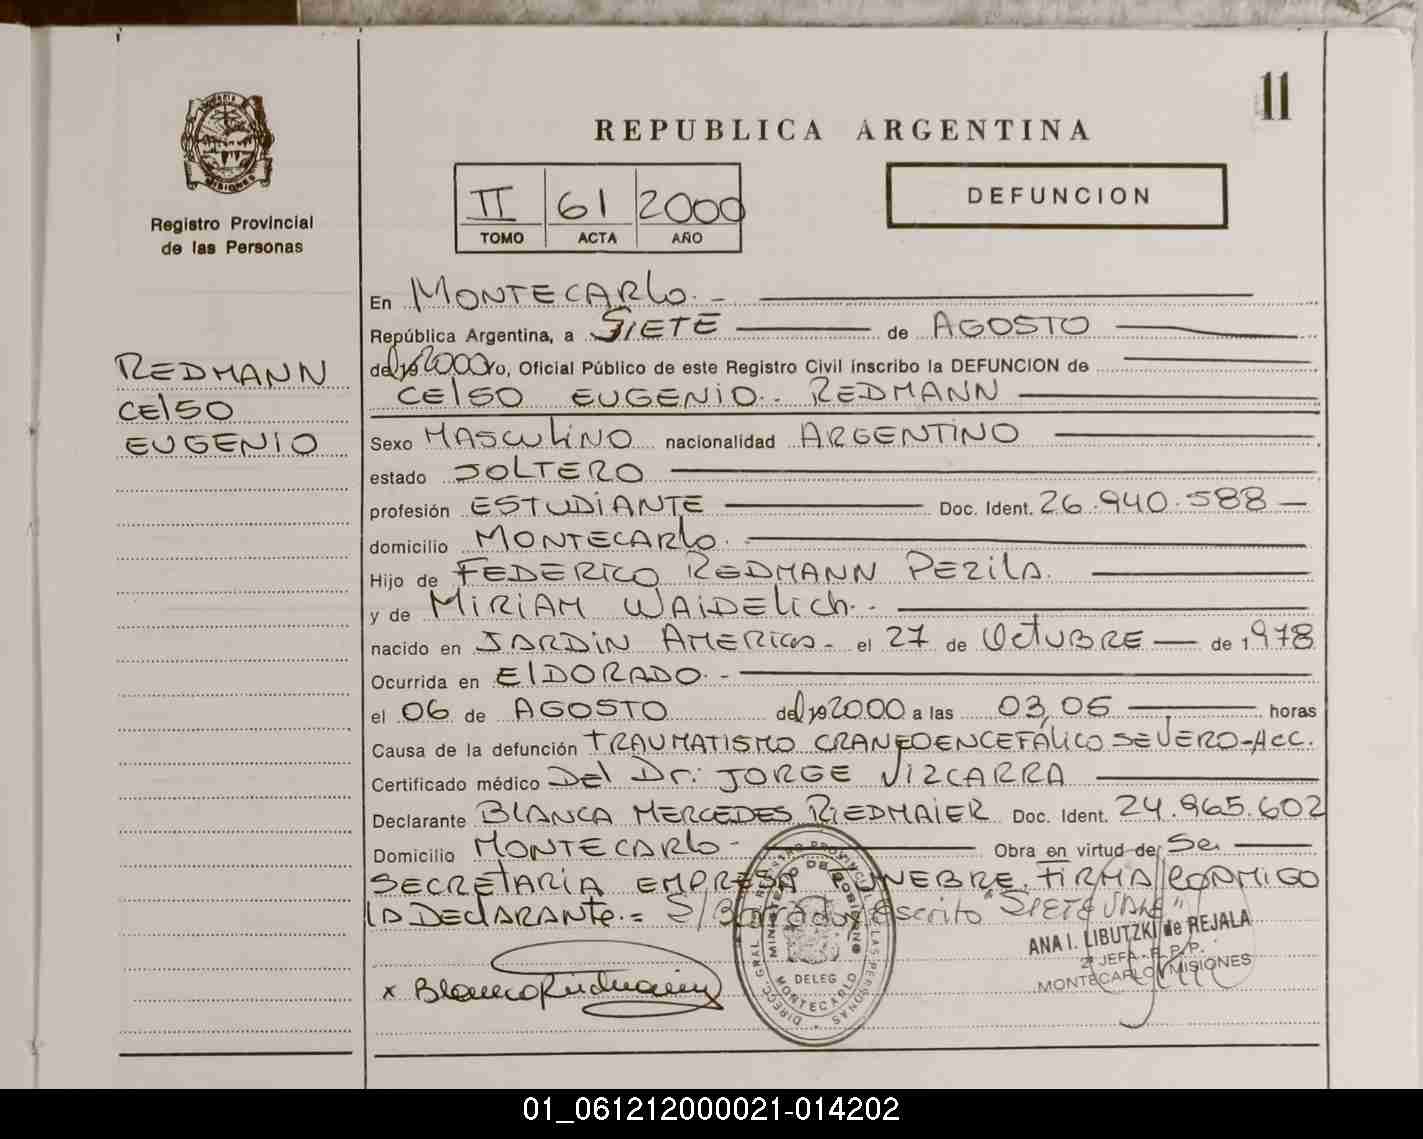 11
REPUBLICA ARGENTINA
MISIONES
Registro Provincial
de las Personas
II 61 2000
TOMO ACTA AÑO
DEFUNCION
En MONTECARLO.-
República Argentina, a SIETE de AGOSTO
del 2000 Yo, Oficial Público de este Registro Civil inscribo la DEFUNCION de
CELSO EUGENIO REDMANN
REDMANN
CELSO
EUGENIO
Sexo MASCULINO nacionalidad ARGENTINO
estado SOLTERO
profesión ESTUDIANTE Doc. Ident. 26.940.588
domicilio MONTECARLO.
Hijo de FEDERICO REDMANN PEZILA.
y de MIRIAM WAIDELICH.-
nacido en JARDIN AMERICA- el 27 de OCTUBRE de 1978
Ocurrida en ELDORADO.-
el 06 de AGOSTO del 2000 a las 03,05 horas
Causa de la defunción TRAUMATISMO CRANEOENCEFÁLICO SEVERO-ACC.
Certificado médico Del Dr: JORGE VIZCARRA
Declarante BLANCA MERCEDES RIEDMAIER Doc. Ident. 24.965.602
Domicilio MONTECARLO- Obra en virtud de Ser
SECRETARIA EMPRESA FUNEBRE. FIRMA CONMIGO
LA DECLARANTE.= S/Borrado, Escrito "SIETE VALE"
DIRECC. GRAL. REGISTRO PROVINCIAL DE LAS PERSONAS
MINISTERIO DE GOBIERNO
DELEG
MONTECARLO
ANA I. LIBUTZKI de REJALA
2ª JEFA - R.P.P.
MONTECARLO MISIONES
x Blanca Riedmaier
01_061212000021-014202